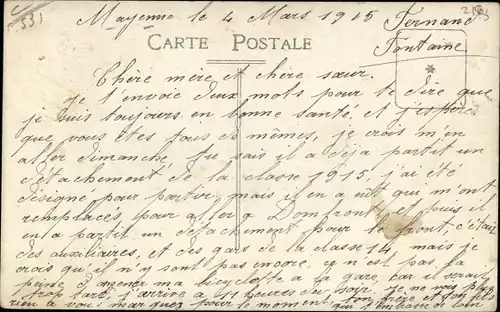 531
Mayenne le 4 Mars 1915 Fernand
CARTE POSTALE Fontaine
Chère mère et chère sœur.
Je t'envoie deux mots pour te dire que
je suis toujours en bonne santé, et j'espère
que vous êtes tous de mêmes, je crois m'en
aller dimanche, tu sais il a déja partit un
détachement de la classe 1915, j'ai été
désigné pour partir, mais il en a eut qui m'ont
remplacés, pour aller a Domfront, et puis il
en a partit un detachement pour le front, c'était
des auxiliaires, et des gars de la classe 14 mais je
crois qu'il n'y sont pas encore, ce n'est pas la
peine d'amener ma bicyclette a la gare, car il serait
trop tard, j'arrive a 11 heures du soir. Je ne vois plus
rien a vous marquez pour le moment, ton frère et ton fils
qui t'embrasse de loin